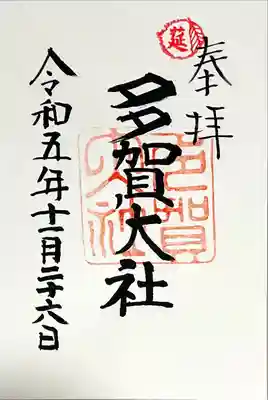 延
奉拝
多賀大社
多賀大社
令和五年十一月二十六日